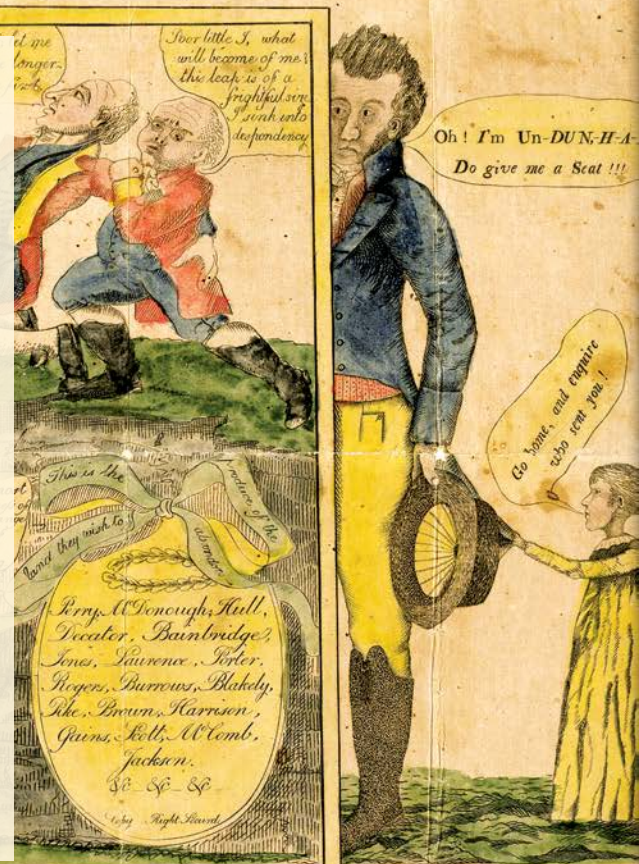 et me
longer
Poor little I, what
will become of me?
this leap is of a
frightful size
I sink into
despondency
Oh! I'm Un-DUN,-H-A-
Do give me a Seat!!!
Go home, and enquire
who sent you!
This is the
produce of the
land they wish to
abandon
Perry, McDonough, Hull,
Decater, Bainbridge,
Jones, Laurence, Porter,
Rogers, Burrows, Blakely,
Pike, Brown, Harrison,
Gains, Scott, McComb,
Jackson.
&c &c &c
Copy Right Secured